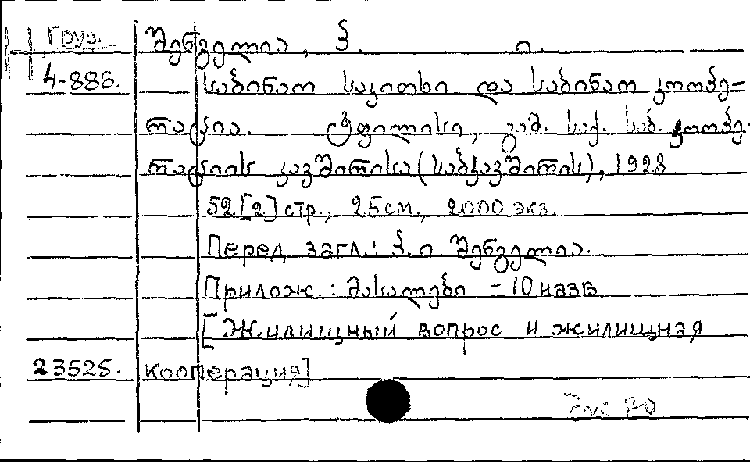 Груз.
შენგელია, პ. ი.
4-888.
საბინაო საკითხი და საბინაო კოოპე-
რაცია. ტფილისი, გამ. საქ. საბ. კოოპე-
რაციის კავშირისა (საბკავშირის), 1928
52 [2] стр., 25 см., 2000 экз.
Перед загл.: პ. ი შენგელია.
Прилож.: მასალები – 10 назв.
[Жилищный вопрос и жилищная
23525. кооперация]